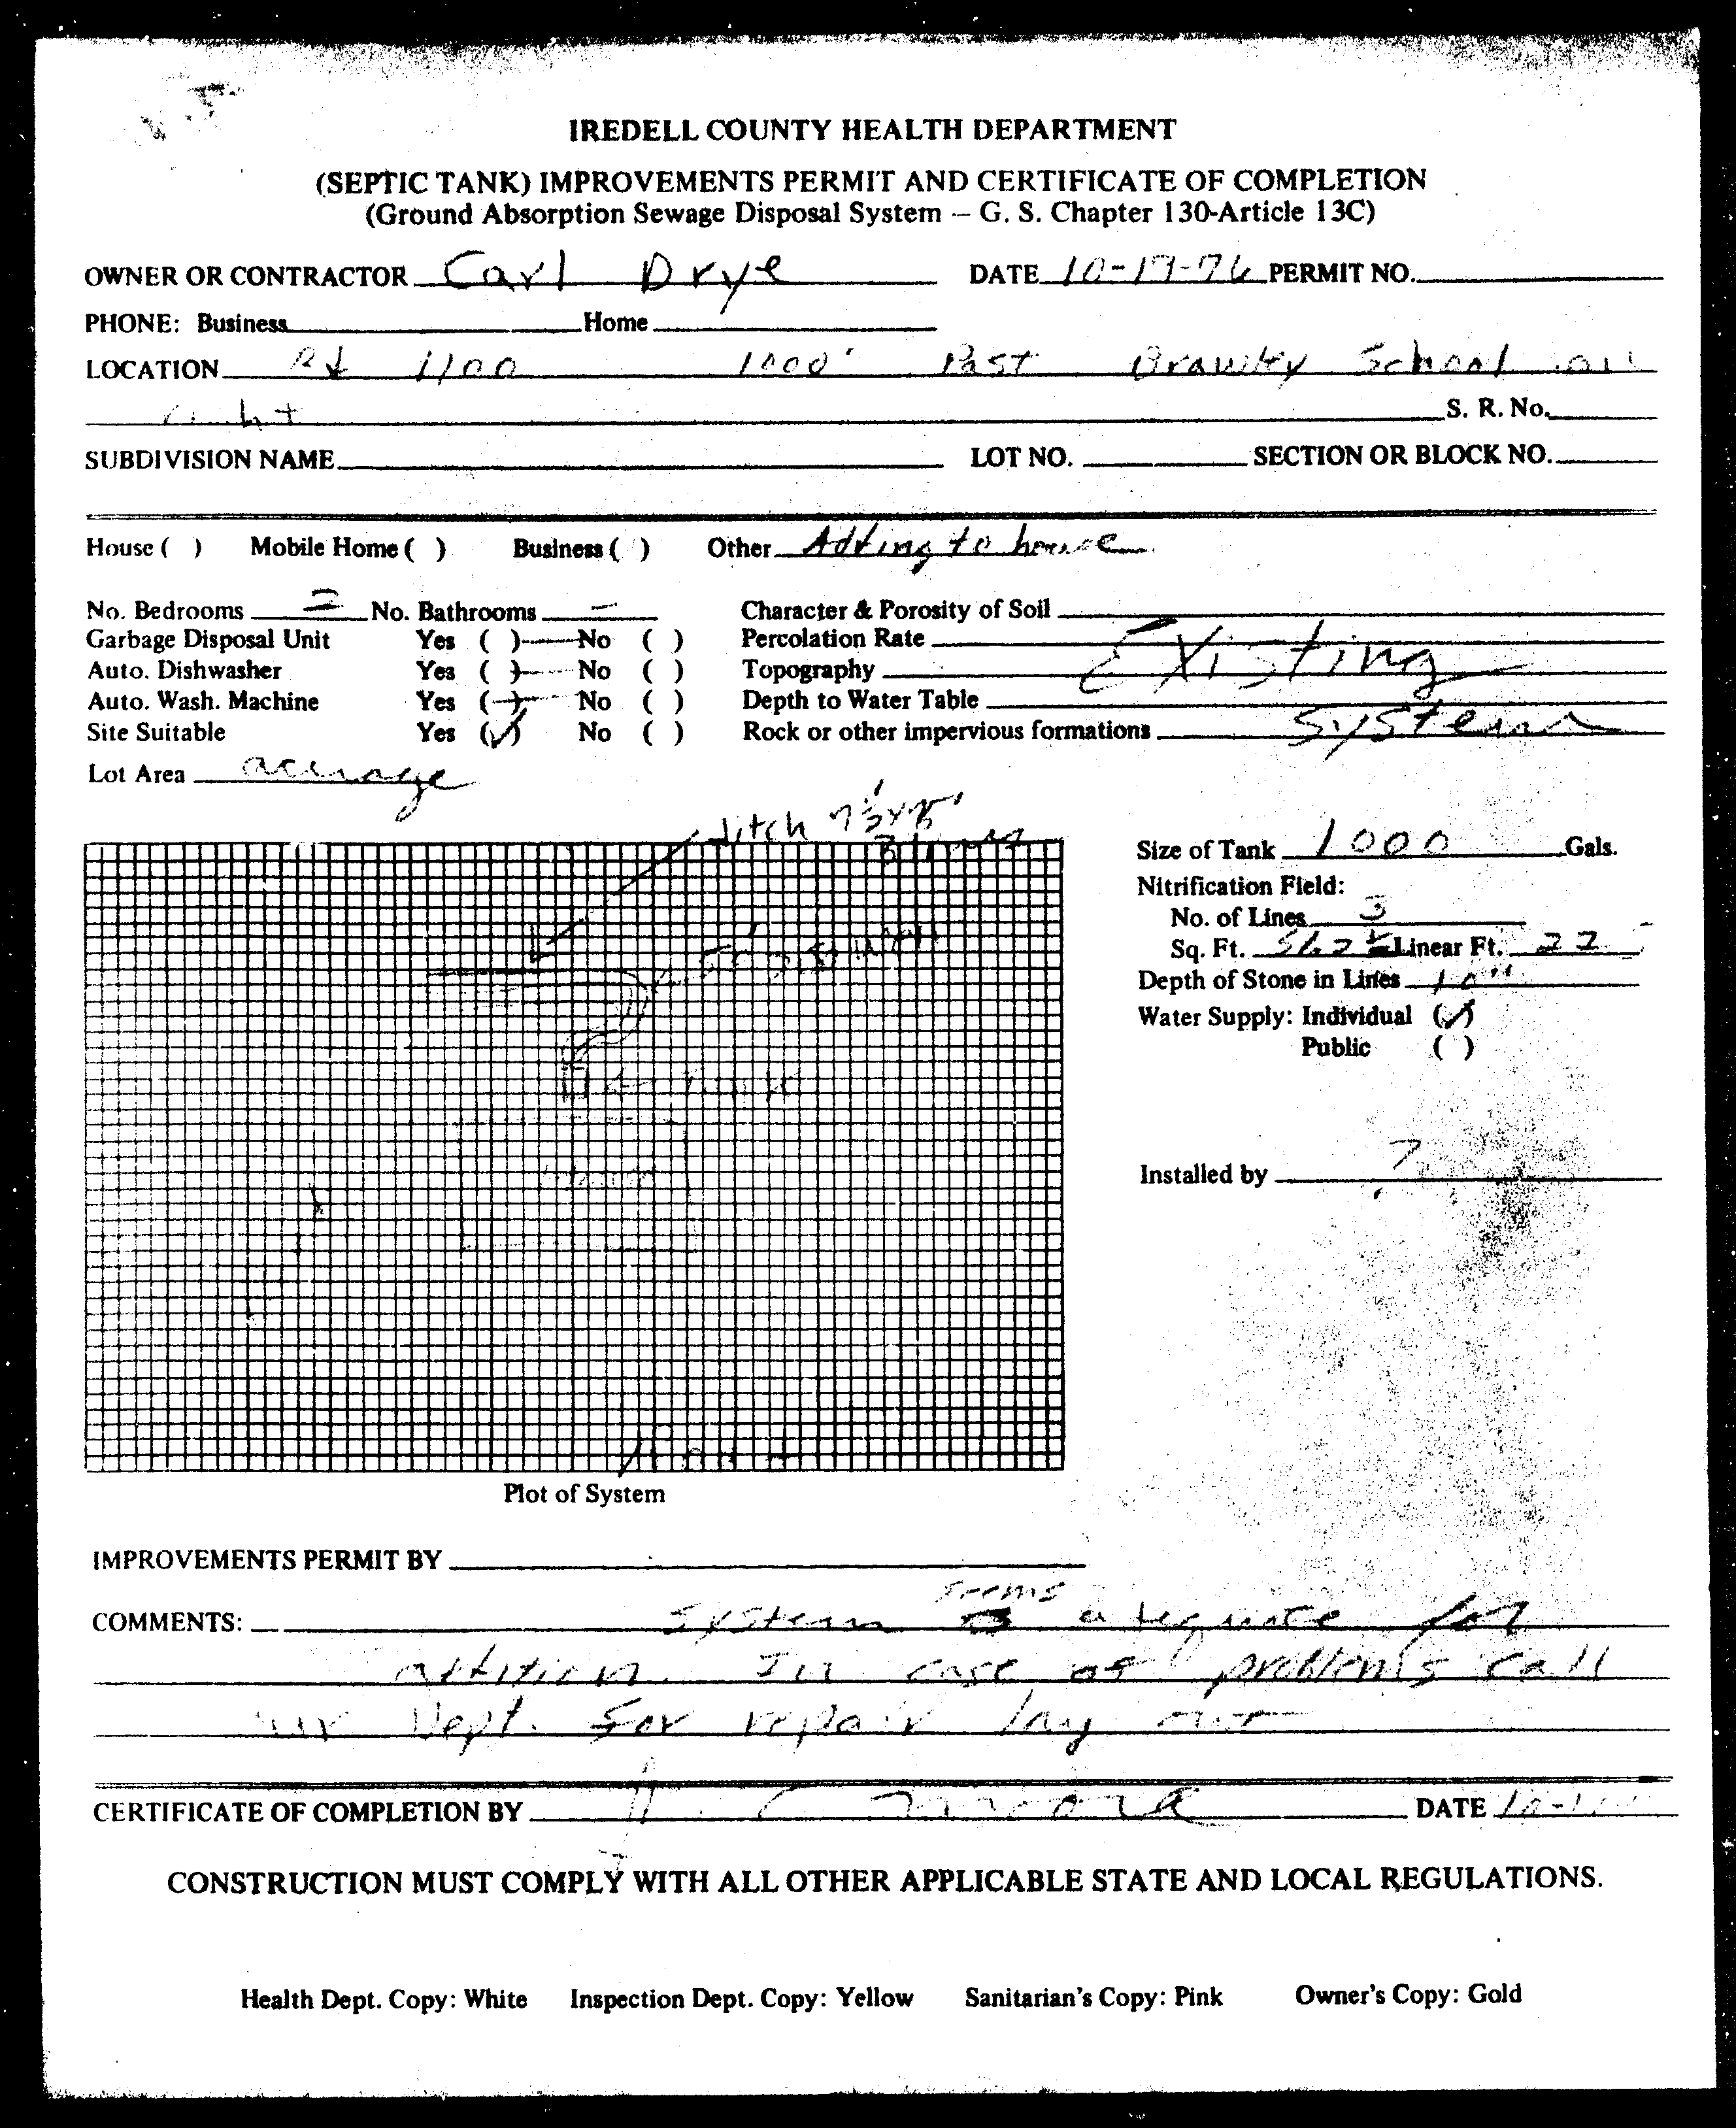 IREDELL COUNTY HEALTH DEPARTMENT
(SEPTIC TANK) IMPROVEMENTS PERMIT AND CERTIFICATE OF COMPLETION
(Ground Absorption Sewage Disposal System – G. S. Chapter 130-Article 13C)
OWNER OR CONTRACTOR Carl Drye DATE 10-19-76 PERMIT NO.
PHONE: Business Home
LOCATION Rd 1100 1000' Past Brawley School on
right S. R. No.
SUBDIVISION NAME LOT NO. SECTION OR BLOCK NO.
House ( ) Mobile Home ( ) Business ( ) Other Adding to house
No. Bedrooms 2 No. Bathrooms – Character & Porosity of Soil
Garbage Disposal Unit Yes ( ) No ( ) Percolation Rate Existing
Auto. Dishwasher Yes ( ) No ( ) Topography
Auto. Wash. Machine Yes ( ) No ( ) Depth to Water Table System
Site Suitable Yes (✓) No ( ) Rock or other impervious formations
Lot Area acerage
ditch
Size of Tank 1000 Gals.
Nitrification Field:
No. of Lines 3
Sq. Ft. Linear Ft.
Depth of Stone in Lines 10"
Water Supply: Individual (✓)
Public ( )
Tank
Installed by ?
Plot of System
IMPROVEMENTS PERMIT BY
seems
COMMENTS: System adequate for
addition. In case of problems call
our Dept. for repair lay out
CERTIFICATE OF COMPLETION BY DATE
CONSTRUCTION MUST COMPLY WITH ALL OTHER APPLICABLE STATE AND LOCAL REGULATIONS.
Health Dept. Copy: White Inspection Dept. Copy: Yellow Sanitarian's Copy: Pink Owner's Copy: Gold